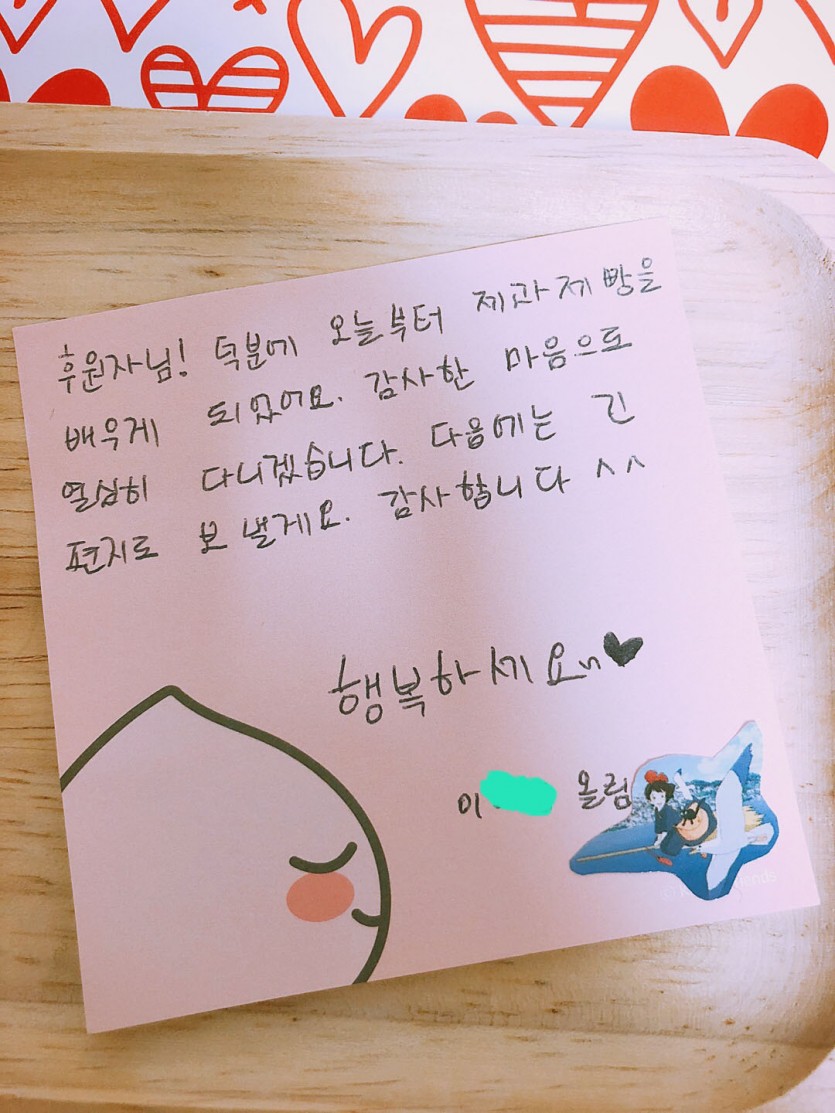 후원자님! 덕분에 오늘부터 제과제빵을
배우게 되었어요. 감사한 마음으로
열심히 다니겠습니다. 다음에는 긴
편지로 보낼게요. 감사합니다 ^^
행복하세요~♥
이 올림